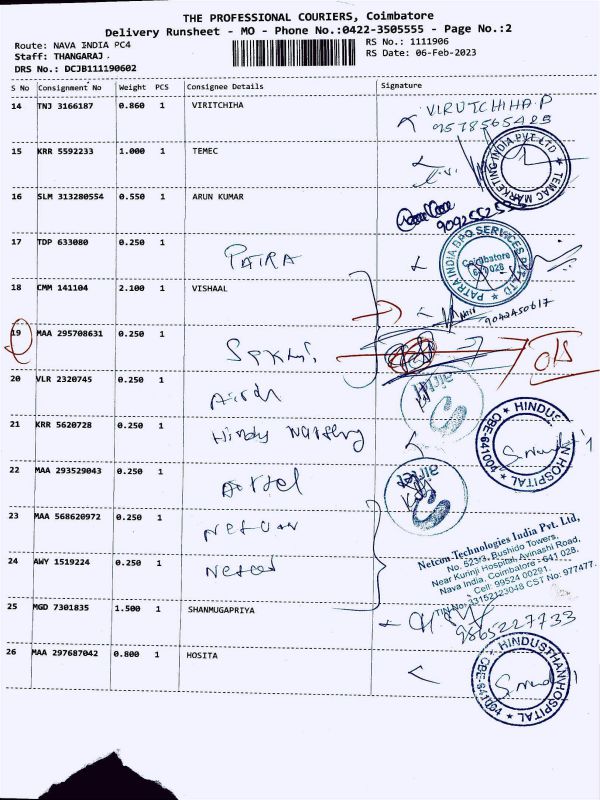 THE PROFESSIONAL COURIERS, Coimbatore
Delivery Runsheet - MO - Phone No.:0422-3505555 - Page No.:2
Route: NAVA INDIA PC4 RS No.: 1111906
Staff: THANGARAJ. RS Date: 06-Feb-2023
DRS No.: DCJB111190602
S No Consignment No Weight PCS Consignee Details Signature
14 TNJ 3166187 0.860 1 VIRITCHIHA VIRUTCHIHA.P
9578565485
15 KRR 5592233 1.000 1 TEMEC
TEMAC MARKETING INDIA PVT LTD
16 SLM 313280554 0.550 1 ARUN KUMAR
17 TDP 633080 0.250 1 PATRA
PATRA INDIA BPO SERVICES PVT LTD
Coimbatore
18 CMM 141104 2.100 1 VISHAAL
9042450617
19 MAA 295708631 0.250 1
20 VLR 2320745 0.250 1
airtel
21 KRR 5620728 0.250 1 Hindu
HINDUSTHAN HOSPITAL
CBE-641004
22 MAA 293529043 0.250 1 Airtel
airtel
23 MAA 568620972 0.250 1 Netcon
24 AWY 1519224 0.250 1 Netcon
Netcon Technologies India Pvt. Ltd,
No. 523/3, Bushido Towers,
Near Kurinji Hospital, Avinashi Road,
Nava India, Coimbatore - 641 028.
Cell: 99524 00291.
TIN No: 33152123048 CST No: 977477.
25 MGD 7301835 1.500 1 SHANMUGAPRIYA
9865227733
26 MAA 297687042 0.800 1 HOSITA
HINDUSTHAN HOSPITAL
CBE-641004